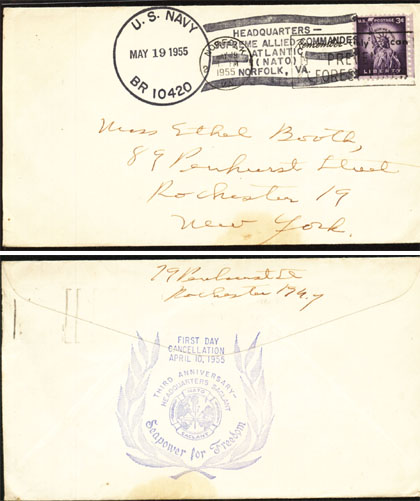 U.S. NAVY
MAY 19 1955
BR 10420
HEADQUARTERS—
SUPREME ALLIED COMMANDER
ATLANTIC
(NATO)
NORFOLK, VA.
1955
Remember
Only
can
FOREST
U.S.
3¢
LIBERTY
Miss Ethel Booth,
89 Penhurst Street
Rochester 19
New York.
79 Penhurst St
Rochester N.Y
FIRST DAY
CANCELLATION
APRIL 10, 1955
THIRD ANNIVERSARY—
HEADQUARTERS SACLANT
NATO
SACLANT
Seapower for Freedom